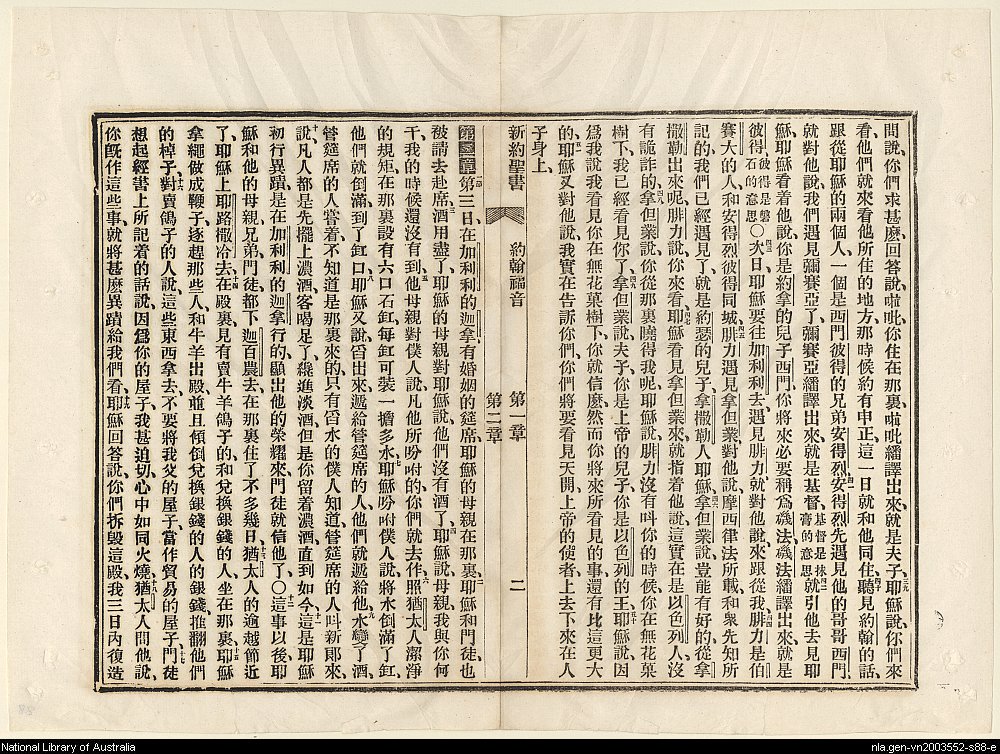 問說、你們求甚麽回答說、啦吡、你住在那裏、啦吡繙譯出來、就是夫子、耶穌說、你們來
看、他們就來看他所住的地方、那時候約有申正、這一日就和他同住、聽見約翰的話、
跟從耶穌的兩個人、一個是西門彼得的兄弟安得烈、安得烈先遇見他的哥哥西門、
就對他說、我們遇見彌賽亞了、彌賽亞繙譯出來、就是基督、基督是抹膏的意思就引他去見耶
穌、耶穌看着他說、你是約拿的兒子西門、你將來必要稱爲磯法、磯法繙譯出來就是
彼得、彼得是磐石的意思〇次日、耶穌要往加利利去、遇見腓力、就對他說、來跟從我、腓力是伯
賽大的人、和安得烈彼得同城、腓力遇見拿但業、對他說、摩西律法所載、和衆先知所
記的、我們已經遇見了、就是約瑟的兒子拿撒勒人耶穌、拿但業說、豈能有好的從拿
撒勒出來呢、腓力說、你來看、耶穌看見拿但業來、就指着他說、這實在是以色列人、沒
有詭詐的、拿但業說、你從那裏曉得我呢、耶穌說、腓力沒有叫你的時候、你在無花菓
樹下、我已經看見你了、拿但業說、夫子、你是上帝的兒子、你是以色列的王、耶穌說、因
爲我說我看見你在無花菓樹下、你就信麽、然而你將來所看見的事、還有比這更大
的、耶穌又對他說、我實在告訴你們、你們將要看見天開、上帝的使者、上去下來在人
子身上、
新約聖書　約翰福音　第一章　第二章　二
第二章第三日、在加利利的迦拿、有婚姻的筵席、耶穌的母親在那裏、耶穌和門徒也
被請去赴席、酒用盡了、耶穌的母親對耶穌說、他們沒有酒了、耶穌說、母親、我與你何
干、我的時候還沒有到、他母親對僕人說、凡他所吩咐的、你們就去作、照猶太人潔淨
的規矩、在那裏設有六口石缸、每缸可裝一擔多水、耶穌吩咐僕人說、將水倒滿了缸、
他們就倒滿到了缸口、耶穌又說、舀出來、遞給管筵席的人、他們就遞給他、水變了酒、
管筵席的人嘗着、不知道是那裏來的、只有舀水的僕人知道、管筵席的人叫新郎來、
說、凡人都是先擺上濃酒、客喝足了、纔進淡酒、但是你留着濃酒、直到如今、這是耶穌
初行異蹟、是在加利利的迦拿行的、顯出他的榮耀來、門徒就信他了、〇這事以後、耶
穌和他的母親兄弟門徒、都下迦百農去、在那裏住了不多幾日、猶太人的逾越節近
了、耶穌上耶路撒冷去、在殿裏見有賣牛羊鴿子的、和兌換銀錢的人、坐在那裏、耶穌
拿繩做成鞭子、逐趕那些人、和牛羊出殿、並且傾倒兌換銀錢的人的銀錢、推翻他們
的棹子、對賣鴿子的人說、這些東西拿去、不要將我父的屋子、當作貿易的屋子、門徒
想起經書上所記着的話說、因爲你的屋子、我甚迫切、心中如同火燒、猶太人問他說、
你旣作這些事、就將甚麽異蹟給我們看、耶穌回答說、你們拆毀這殿、我三日內復造
National Library of Australia
nla.gen-vn2003552-s88-e